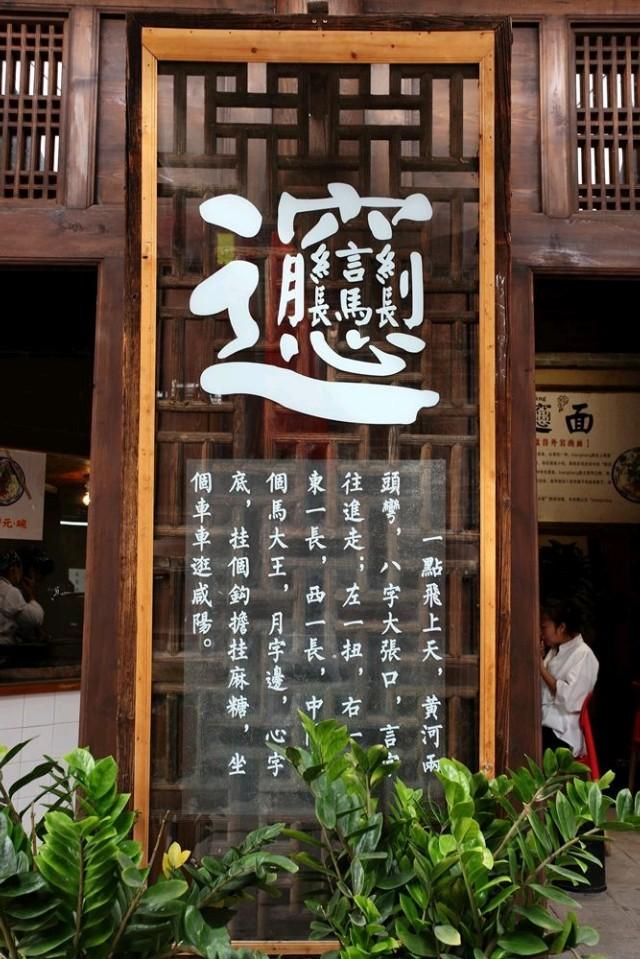 𰻞
一點飛上天，黃河兩
頭彎，八字大張口，言字
往進走；左一扭，右一
東一長，西一長，中
個馬大王，月字邊，心字
底，挂個鈎擔挂麻糖，坐
個車車逛咸陽。
𰻞面
元·碗